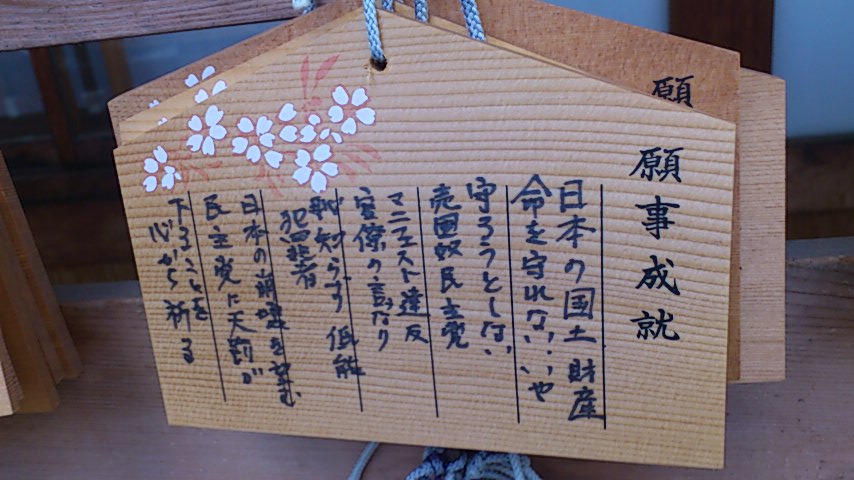 願
願事成就
日本の国土財産
命を守れない、いや
守ろうとしない、
売国奴民主党
マニフェスト違反
官僚の言なり
恥知らず 低能
犯罪者
日本の崩壊を望む
民主党に天罰が
下ることを
心から祈る